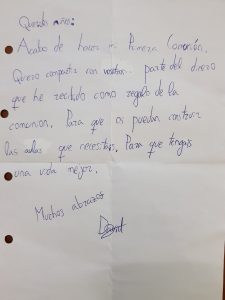 Queridos niños:
Acabo de hacer mi Primera Comunión,
Quiero compartir con vosotros parte del dinero
que he recibido como regalo de la
comunión. Para que os puedan construir
las aulas que necesitáis, Para que tengais
una vida mejor.
Muchos abrazos